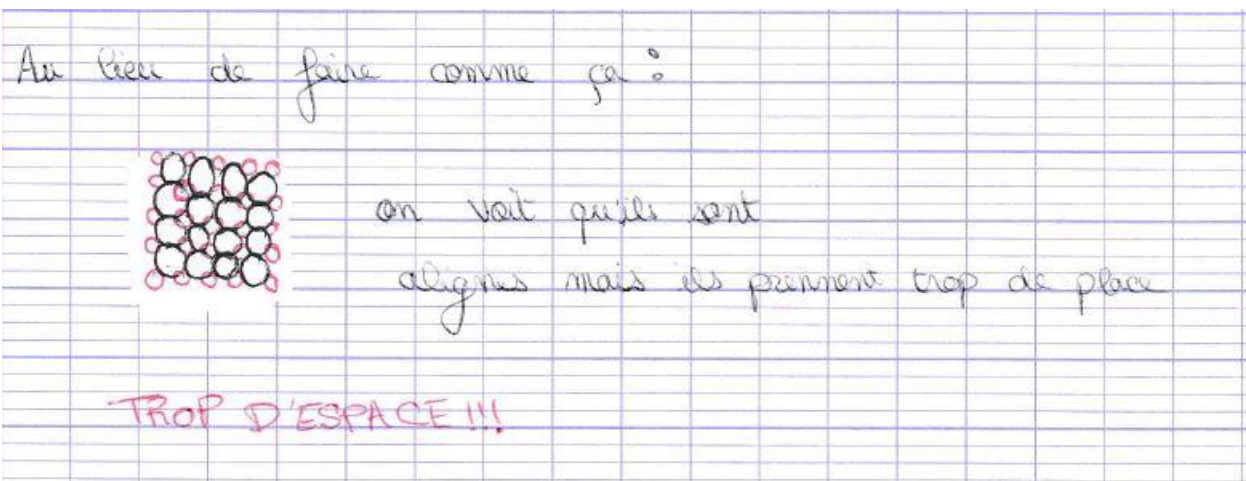 Au lieu de faire comme ça :
on voit qu'ils sont
alignés mais ils prennent trop de place
TROP D'ESPACE !!!